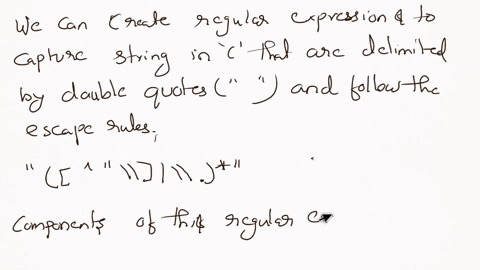 We can create regular expression & to
capture string in 'C' that are delimited
by double quotes (" ") and follow the
escape rules;
"([^"\\]|\\.)*"
Components of this regular ex